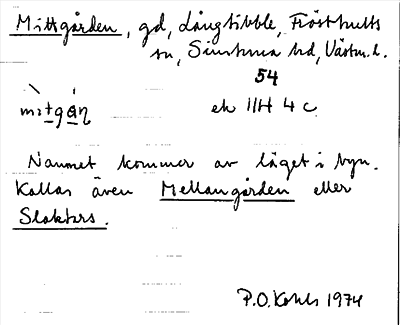 Mittgården, gd, Långtibble, Frösthults
sn, Simtuna hd, Västm.l.
54
mitgán ek 11H 4 c
Namnet kommer av läget i byn.
Kallas även Mellangården eller
Slaktars.
P.O. Kohls 1974